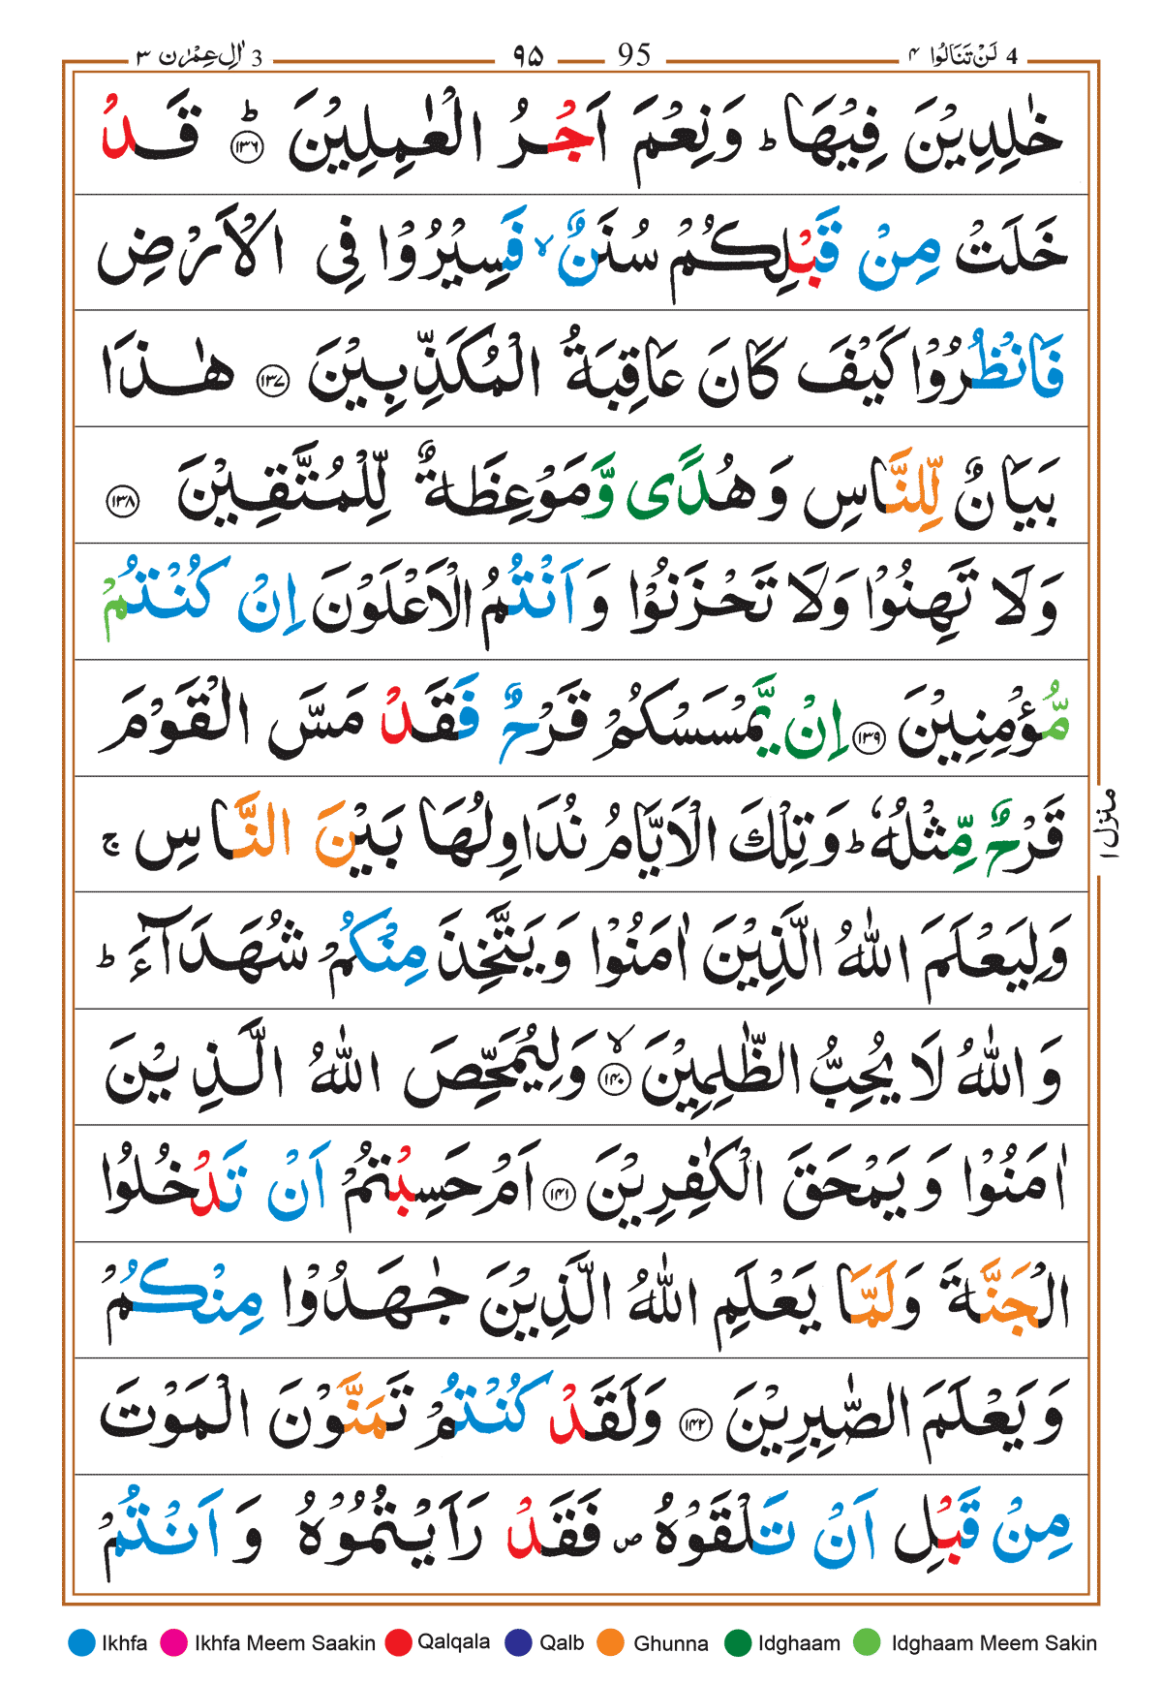 3 اٰلِ عِمْرٰن ٣ ٩٥ 95 4 لَنْ تَنَالُوا ٤
خٰلِدِيْنَ فِيْهَا ؕ وَنِعْمَ اَجْرُ الْعٰمِلِيْنَ ؕ ﴿١٣٦﴾ قَدْ
خَلَتْ مِنْ قَبْلِكُمْ سُنَنٌ ۙ فَسِيْرُوْا فِى الْاَرْضِ
فَانْظُرُوْا كَيْفَ كَانَ عَاقِبَةُ الْمُكَذِّبِيْنَ ﴿١٣٧﴾ هٰذَا
بَيَانٌ لِّلنَّاسِ وَهُدًى وَّمَوْعِظَةٌ لِّلْمُتَّقِيْنَ ﴿١٣٨﴾
وَلَا تَهِنُوْا وَلَا تَحْزَنُوْا وَاَنْتُمُ الْاَعْلَوْنَ اِنْ كُنْتُمْ
مُّؤْمِنِيْنَ ﴿١٣٩﴾ اِنْ يَّمْسَسْكُمْ قَرْحٌ فَقَدْ مَسَّ الْقَوْمَ
قَرْحٌ مِّثْلُهٗ ؕ وَتِلْكَ الْاَيَّامُ نُدَاوِلُهَا بَيْنَ النَّاسِ ۚ
وَلِيَعْلَمَ اللّٰهُ الَّذِيْنَ اٰمَنُوْا وَيَتَّخِذَ مِنْكُمْ شُهَدَآءَ ؕ
وَاللّٰهُ لَا يُحِبُّ الظّٰلِمِيْنَ ۙ ﴿١٤٠﴾ وَلِيُمَحِّصَ اللّٰهُ الَّذِيْنَ
اٰمَنُوْا وَيَمْحَقَ الْكٰفِرِيْنَ ﴿١٤١﴾ اَمْ حَسِبْتُمْ اَنْ تَدْخُلُوا
الْجَنَّةَ وَلَمَّا يَعْلَمِ اللّٰهُ الَّذِيْنَ جٰهَدُوْا مِنْكُمْ
وَيَعْلَمَ الصّٰبِرِيْنَ ﴿١٤٢﴾ وَلَقَدْ كُنْتُمْ تَمَنَّوْنَ الْمَوْتَ
مِنْ قَبْلِ اَنْ تَلْقَوْهُ ۪ فَقَدْ رَاَيْتُمُوْهُ وَاَنْتُمْ
منزل ١
Ikhfa Ikhfa Meem Saakin Qalqala Qalb Ghunna Idghaam Idghaam Meem Sakin